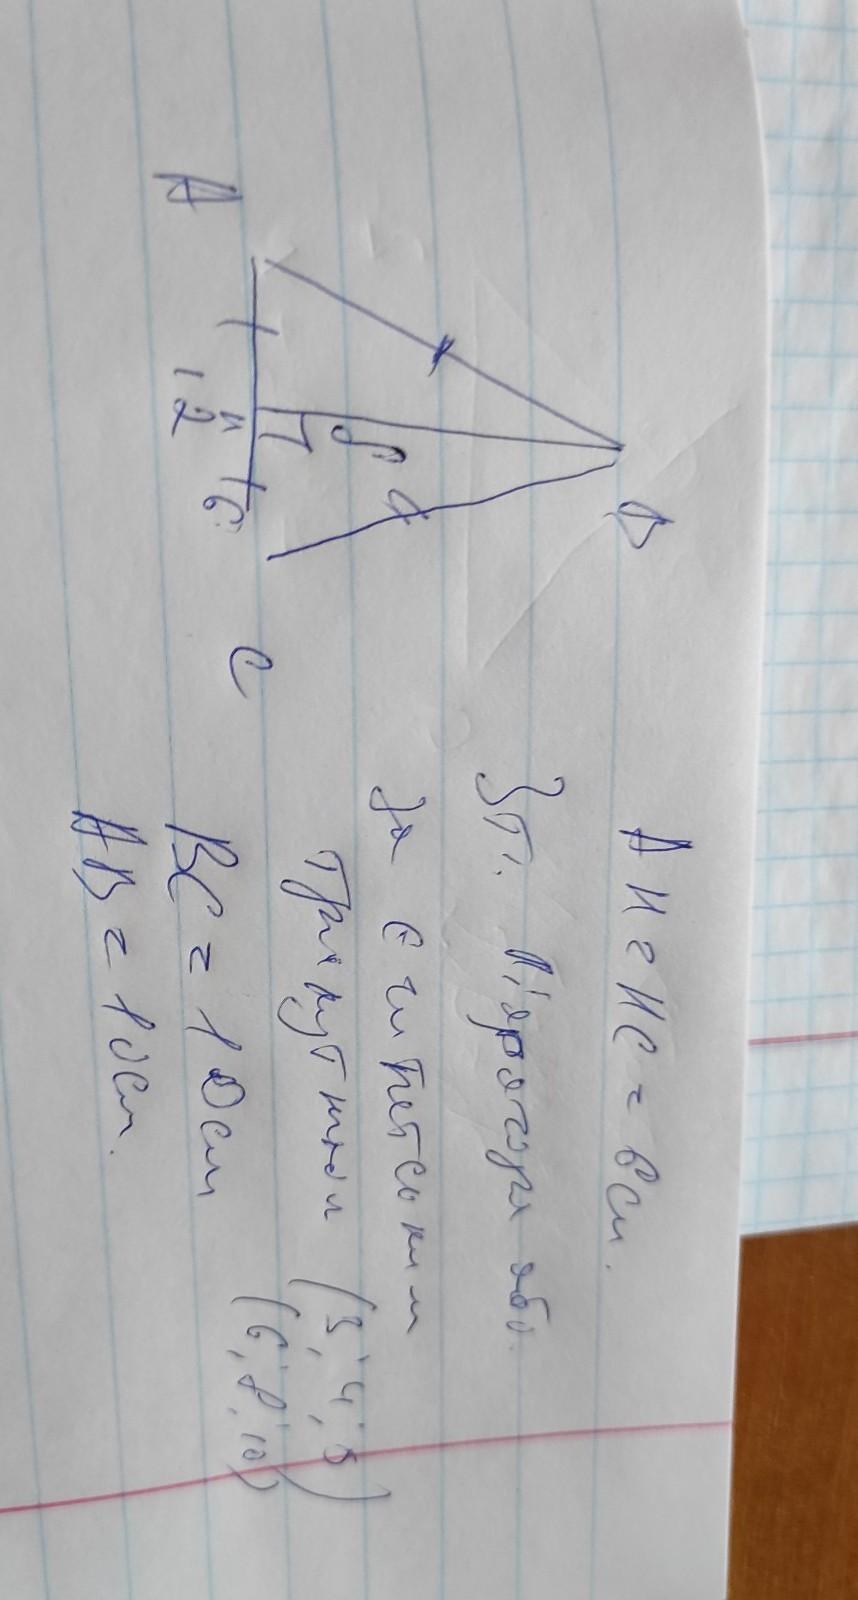 B
8
A
H
6
C
12
AH = HC = 6см.
З т. Піфагора або
за єгипетським
трикутником (3; 4; 5)
(6; 8; 10)
BC = 10см
AB = 10см.